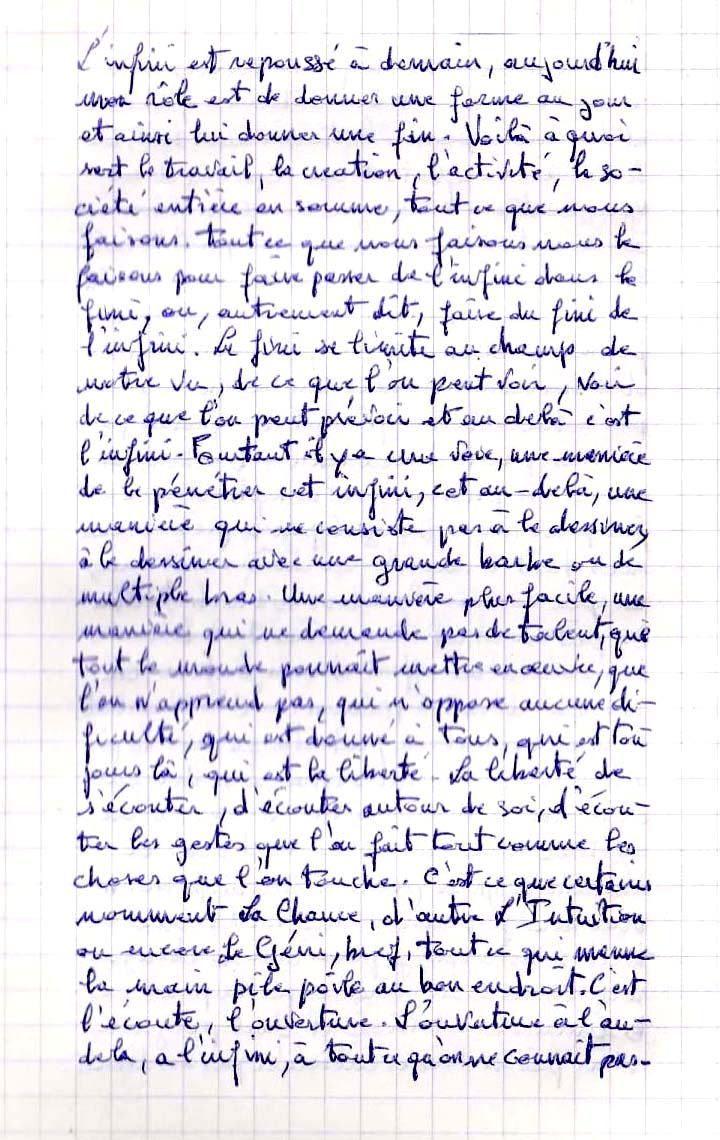 L'infini est repoussé à demain, aujourd'hui
mon rôle est de donner une forme au jour
et ainsi lui donner une fin. Voilà à quoi
sert le travail, la creation, l'activité, la so-
ciété entière en somme, tout ce que nous
faisons. Tout ce que nous faisons nous le
faisons pour faire passer de l'infini dans le
fini, ou, autrement dit, faire du fini de
l'infini. Le fini se limite au champ de
notre vu, de ce que l'on peut voir, voir
de ce que l'on peut prévoir et au delà c'est
l'infini. Pourtant il y a une voie, une manière
de le pénétrer cet infini, cet au-delà, une
manière qui ne consiste pas à le dessiner,
à le dessiner avec une grande barbe ou de
multiple bras. Une manière plus facile, une
manière qui ne demande pas de talent, que
tout le monde pourrait mettre en œuvre, que
l'on n'apprend pas, qui n'oppose aucune di-
ficulté, qui est donné à tous, qui est tou
jours là, qui est la liberté. La liberté de
s'écouter, d'écouter autour de soi, d'écou-
ter les gestes que l'on fait tout comme les
choses que l'on touche. C'est ce que certains
nomment La Chance, d'autre L'Intuition
ou encore Le Géni, bref, tout ce qui mène
la main pile poile au bon endroit. C'est
l'écoute, l'ouverture. L'ouverture à l'au-
delà, a l'infini, à tout ce qu'on ne connait pas.